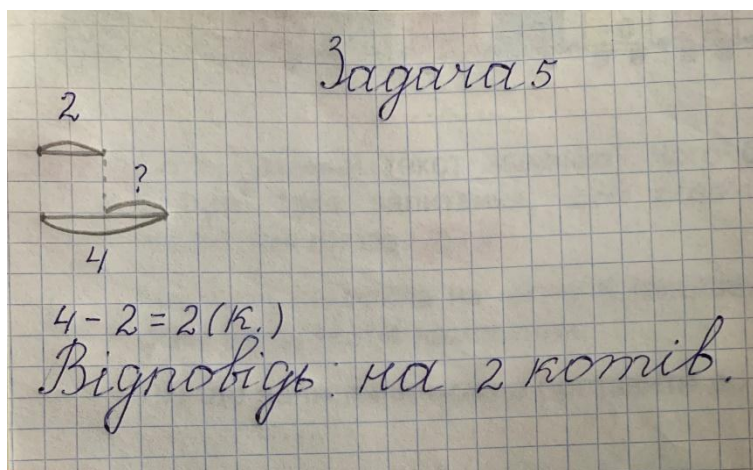 Задача 5
2
?
4
4 - 2 = 2 (К.)
Відповідь: на 2 котів.